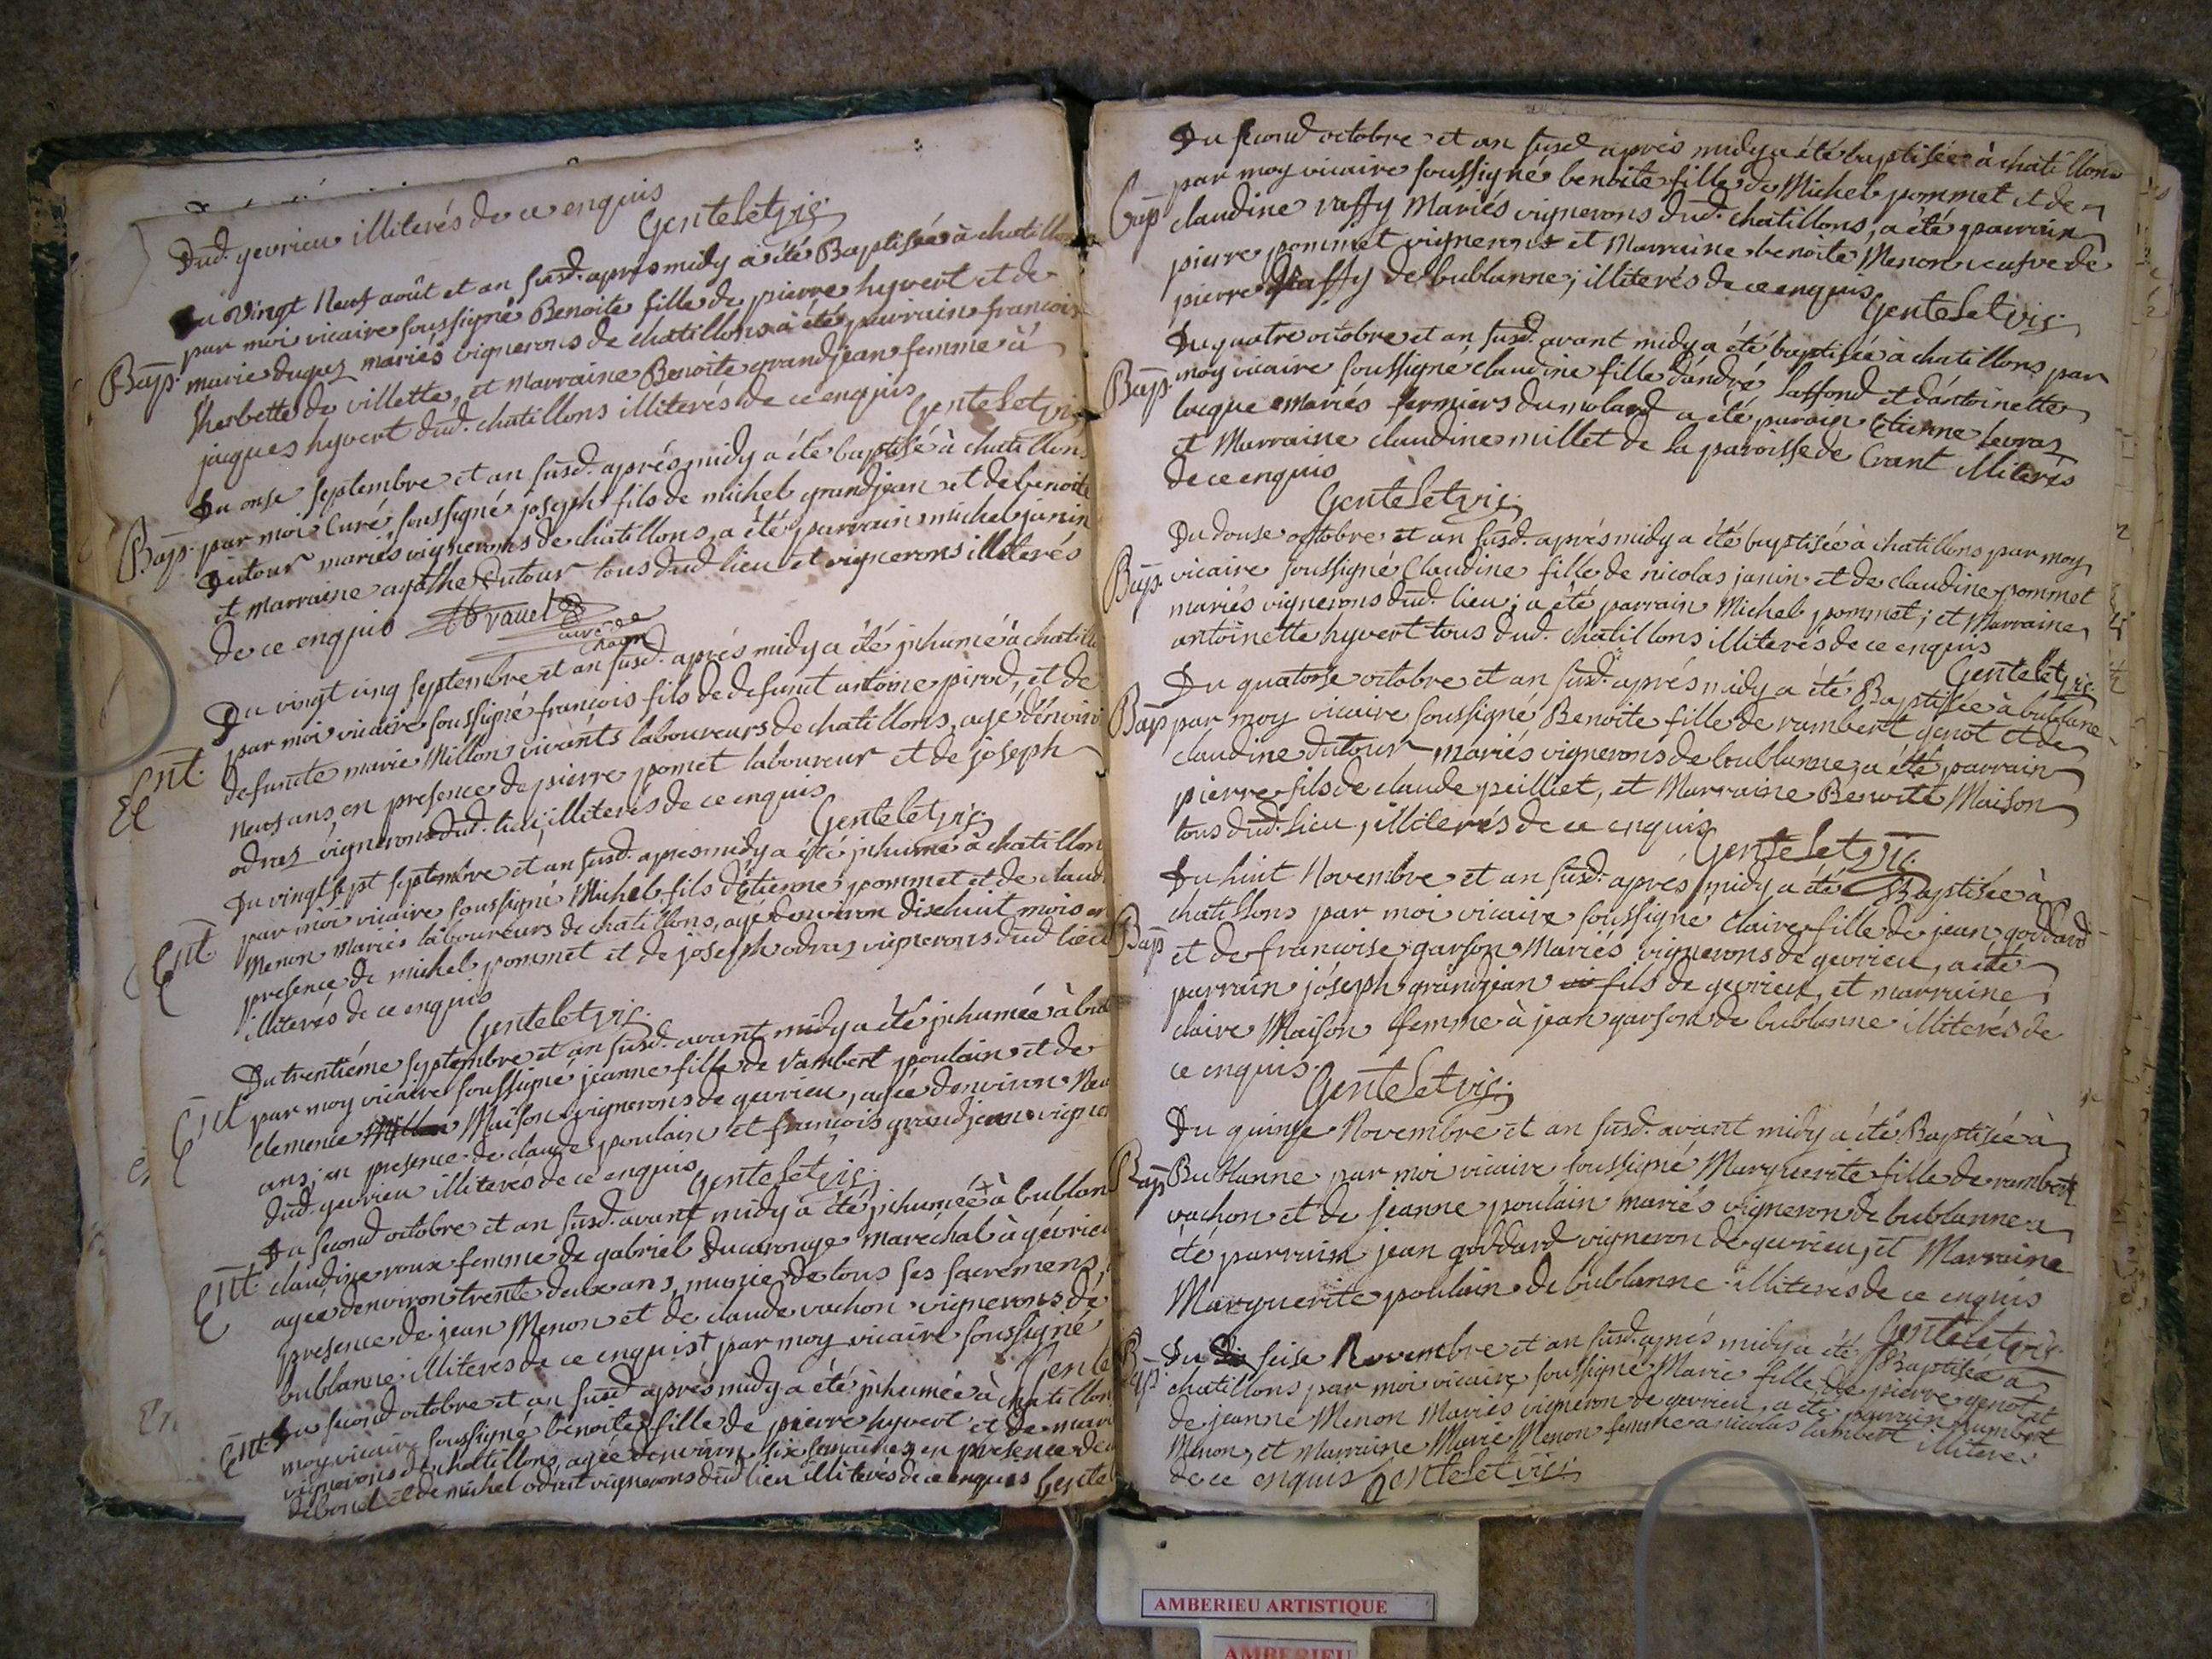 Dud. gevrieu illiterés de ce enquis
Gentelet vic.
Du vingt neuf août et an susd. apres midy a été Baptisée à chatillons
par moi vicaire soussigné Benoite fille de pierre hyvert et de
Bap. marie duguez mariés vignerons de chatillons a été parrain francois
herbette de villette, et marraine Benoite grandjean femme à
jacques hyvert dud. chatillons illiterés de ce enquis
Gentelet vic
Du onse septembre et an susd. aprés midy a été baptisé à chatillons
Bap. par moi Curé soussigné joseph fils de michel grandjean et de benoite
Dutour mariés vignerons de chatillons, a été parrain michel janin
et marraine agathe Dutour tous dud. lieu et vignerons illiterés
de ce enquis Bravel
curé de
Du vingt cinq septembre et an susd. aprés midy a été inhumé à chatillo
Ent. par moi vicaire soussigné francois fils de defunct antoine pirod, et de
defuncte marie Millon vivants laboureurs de chatillons, agé d'environ
neuf ans en presence de pierre pomet laboureur et de joseph
odras vignerons dud. lieu, illiterés de ce enquis
Gentelet vic.
Du vingt sept septembre et an susd. apres midy a été inhumé à chatillon
Ent. par moi vicaire soussigné Michel fils d'étienne pommet et de claud
Menon mariés laboureurs de chatillons, agé denviron dixhuit mois en
presence de michel pommet et de joseph odras vignerons dud lieu
illiterés de ce enquis
Gentelet vic.
Du trentiéme septembre et an susd. avant midy a été inhumée à bub
Ent par moy vicaire soussigné jeanne fille de rambert poulain et de
clemence Maison vignerons de gevrieu, agée denviron Neu
ans; en presence de claude poulain et francois grandjean vigne
dud. gevrieu illiterés de ce enquis
Gentelet vic.
Du second octobre et an susd. avant midy a été inhumée à bublan
Ent claudine roux femme de gabriel Ducarouge maréchal à gévrieu
agée denviron trente deux ans, munie de tous ses sacremens,
presence de jean Menon et de claude vachon vignerons de
bublanne illiterés de ce enquist par moy vicaire soussigné
Gente
Ent Du second octobre et an susd. aprés midy a été inhumée à chatillon
moy vicaire soussigné benoite fille de pierre hyvert et de mari
vignerons de chatillons, agée denviron six semaines en presence de
debonel et de michel odrat vignerons dud lieu illiterés de ce enquis Gentel
Du second octobre et an susd aprés midy a été baptisée à chatillons
par moy vicaire soussigné benoite fille de Michel pommet et de
Bap claudine raffy Mariés vignerons dud. chatillons, a été parrain
pierre pommet vignerons et Marraine benoite Menon veufve de
pierre Raffy de bublanne; illiterés de ce enquis
Gentelet vic.
Du quatre octobre et an susd. avant midy a été baptisée à chatillons par
Bap. moy vicaire soussigné claudine fille d'andré Laffond et d'antoinette
lacque mariés fermiers du molard a été parain Etienne levraz
et Marraine claudine millet de la paroisse de Crant illiterés
de ce enquis
Gentelet vic.
Du douse octobre et an susd. aprés midy a été baptisée à chatillons par moy
Bap. vicaire soussigné Claudine fille de nicolas janin et de claudine pommet
mariés vignerons dud. lieu; a été parrain Michel pommet; et Marraine
antoinette hyvert tous dud. chatillons illiterés de ce enquis
Gentelet vic.
Du quatorse octobre et an susd. aprés midy a été Baptisée à bublane
Bap par moy vicaire soussigné Benoite fille de rambert genot et de
claudine dutour mariés vignerons de bublanne, a été parrain
pierre fils de claude peilliet, et Marraine Benoite Maison
tous dud. lieu, illiterés de ce enquis
Gentelet vic.
Du huit Novembre et an susd. aprés midy a été Baptisée à
chatillons par moi vicaire soussigné Claire fille de jean goddard
Bap et de francoise garson Mariés vignerons de gevrieu, a été
parrain joseph grandjean fils de gevrieu, et marraine
claire Maison femme à jean garson de bublanne illiterés de
ce enquis.
Gentelet vic.
Du quinse Novembre et an susd. avant midy a été Baptisée à
Bap Bublanne par moi vicaire soussigné Marguerite fille de rambert
vachon et de jeanne poulain mariés vigneron de bublanne a
été parrain jean goddard vigneron de gevrieu, et Marraine
Marguerite poulain de bublanne illiterés de ce enquis
Gentelet vic.
Du seise Novembre et an susd. aprés midy a été Baptisée à
Bap. chatillons par moi vicaire soussigné Marie fille de pierre genot et
de jeanne Menon Mariés vigneron de gevrieu, a été parrain humbert
Menon, et Marraine Marie Menon femme a nicolas lambert illiterés
de ce enquis Gentelet vic.
AMBERIEU ARTISTIQUE
AMBERIEU